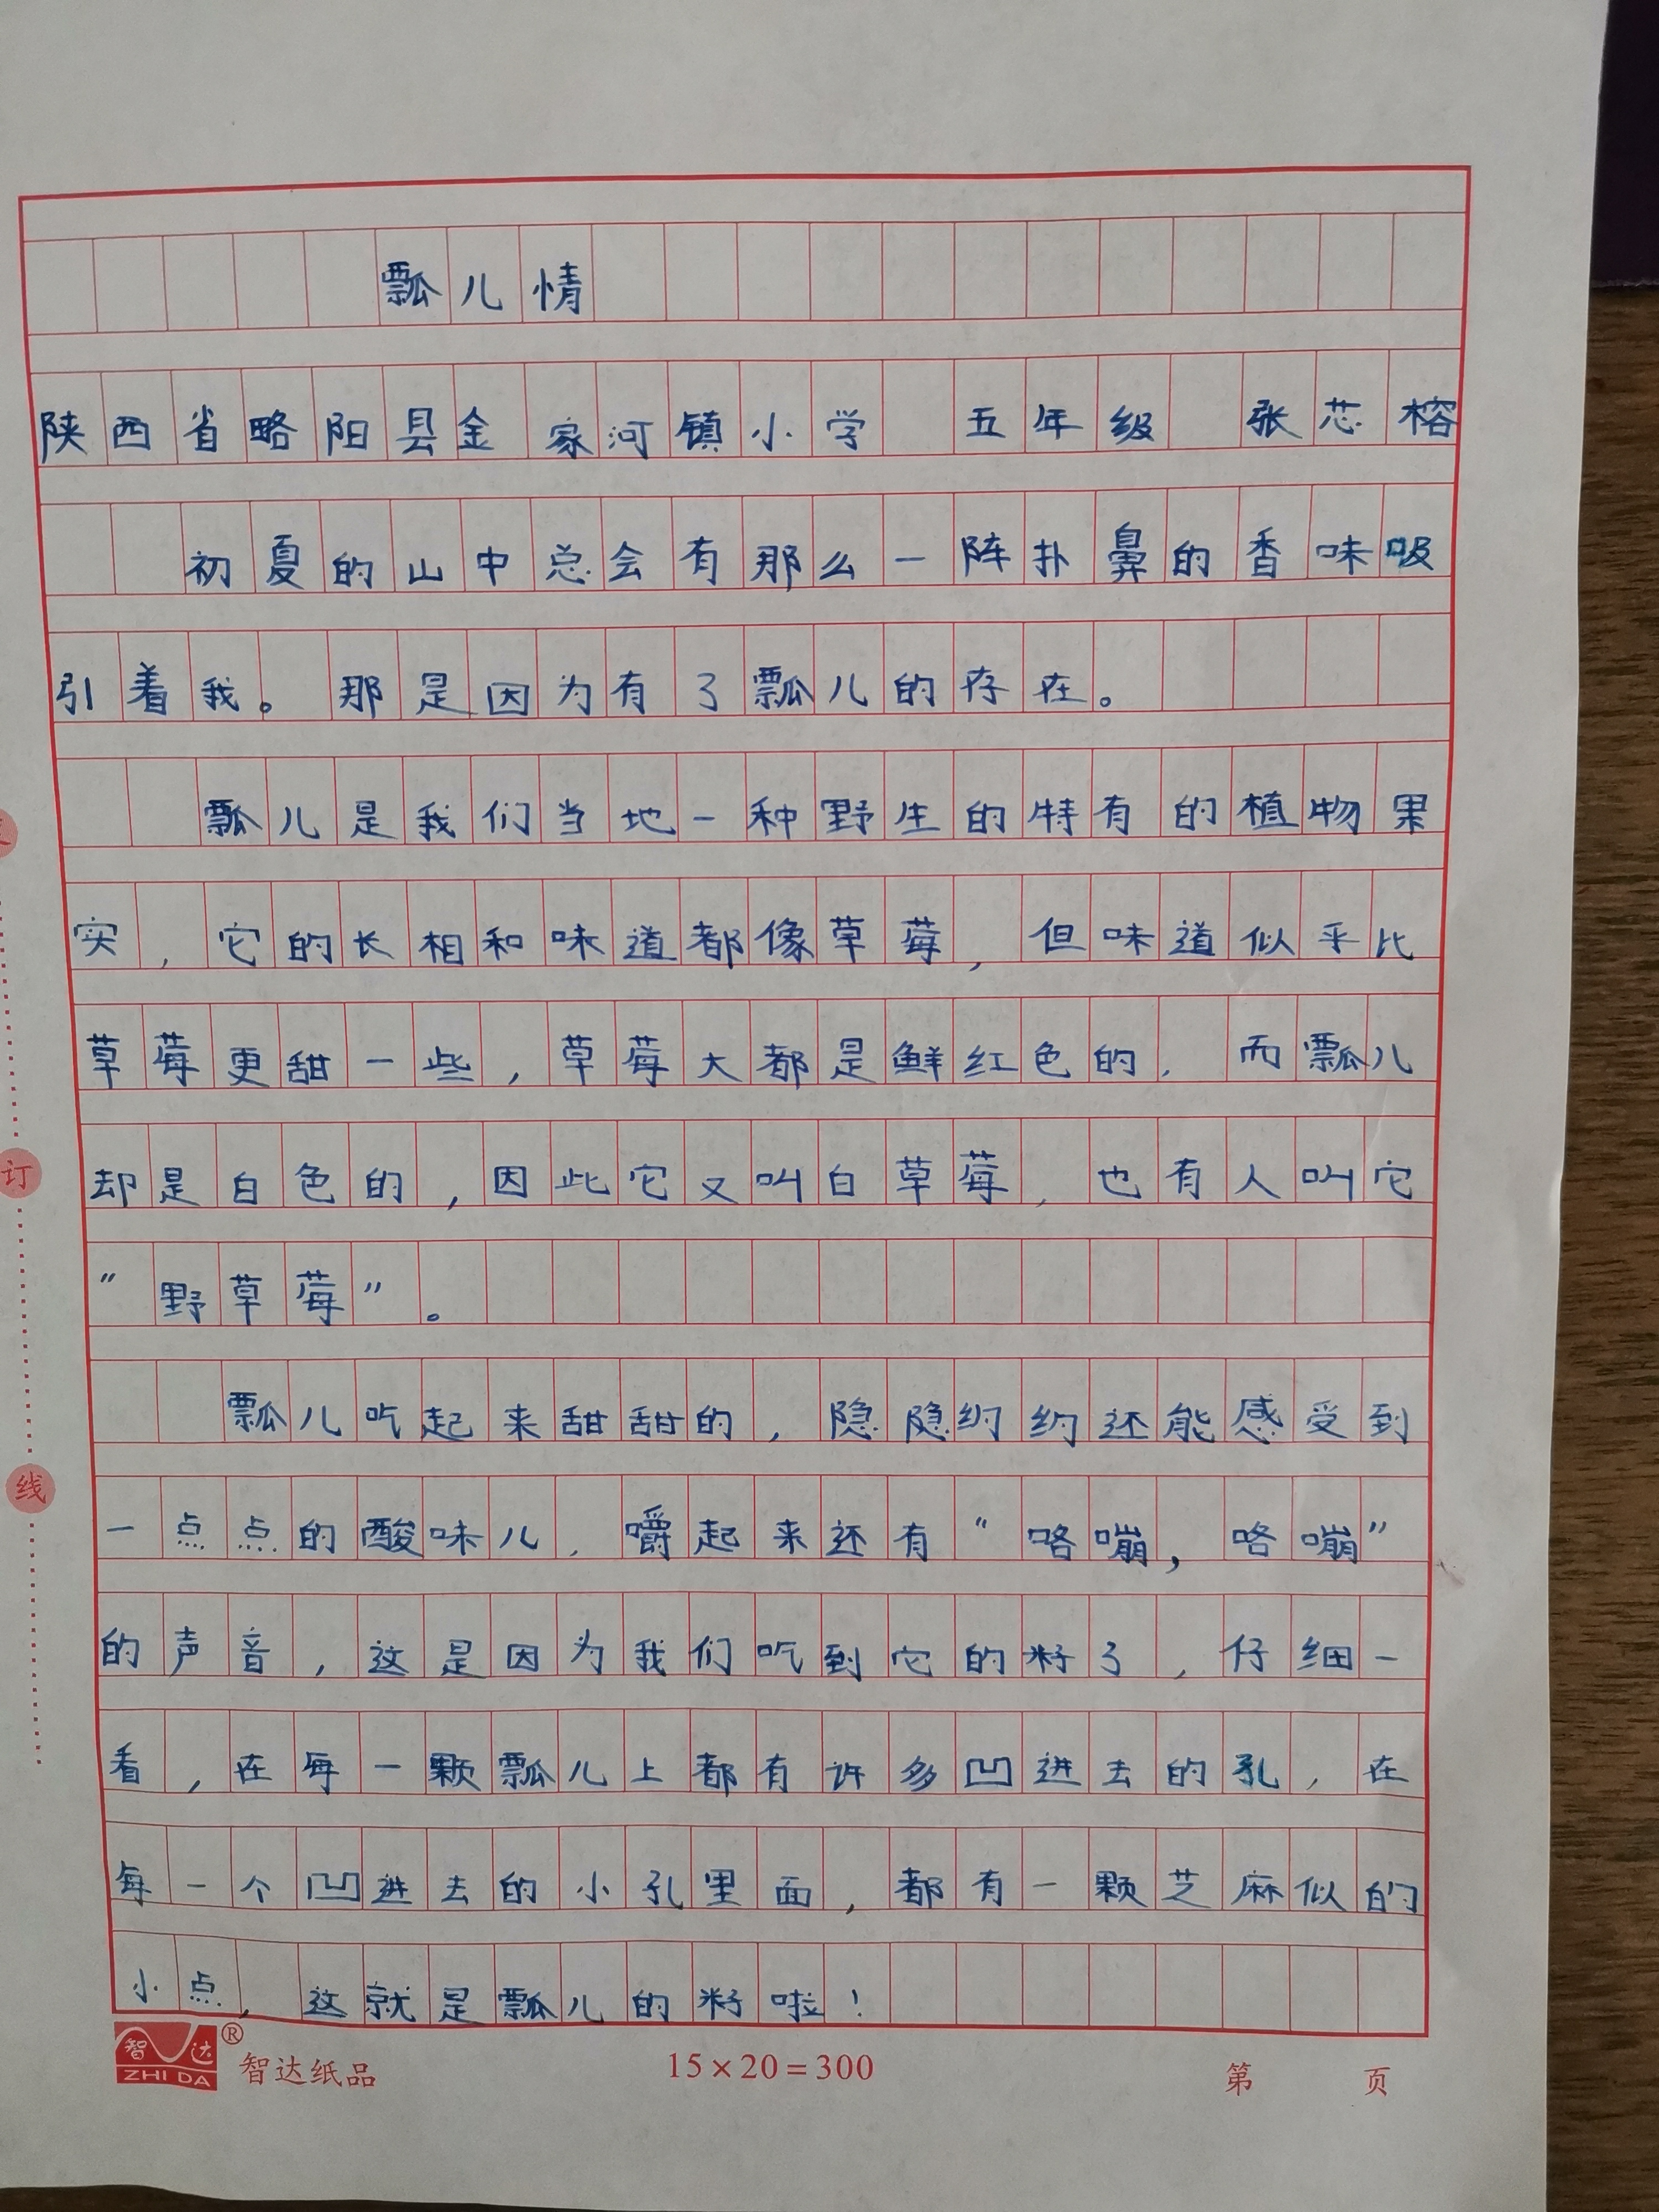 瓢儿情
陕西省略阳县金家河镇小学 五年级 张芯榕
初夏的山中总会有那么一阵扑鼻的香味吸
引着我。那是因为有了瓢儿的存在。
瓢儿是我们当地一种野生的特有的植物果
实,它的长相和味道都像草莓,但味道似乎比
草莓更甜一些,草莓大都是鲜红色的,而瓢儿
却是白色的,因此它又叫白草莓,也有人叫它
“野草莓”。
瓢儿吃起来甜甜的,隐隐约约还能感受到
一点点的酸味儿,嚼起来还有“咯嘣,咯嘣”
的声音,这是因为我们吃到它的籽了,仔细一
看,在每一颗瓢儿上都有许多凹进去的孔,在
每一个凹进去的小孔里面,都有一颗芝麻似的
小点,这就是瓢儿的籽啦!
订
线
智达 ZHI DA ® 智达纸品 15×20=300 第 页